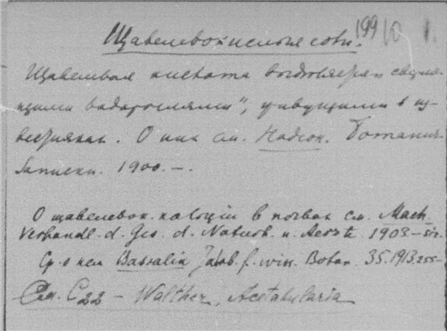 Щавелевокислыя соли. 199
Щавелевая кислота выделяется сверля-
щими водорослями", живущими в из-
вестняках. О них см. Надсон. Ботанич.
Записки. 1900. –.
О щавелевок. кальции в почвах см. Mach.
Verhandl. d. Ges. d. Naturf. u. Aerzte. 1903 –
Ср. о нем Bassalik Jahrb. f. wiss. Botan. 35. 1913. 255 –
См. C22 – Walther, Acetabularia